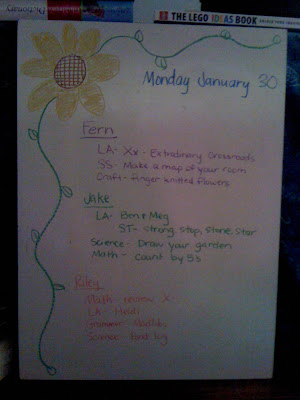 Dictionary
THE LEGO IDEAS BOOK
Monday January 30
Fern
LA- Xx - Extrodinary Crossroads
SS- Make a map of your room
Craft- finger knitted flowers
Jake
LA- Ben & Meg
ST- string, stop, stone, star
Science- Draw your garden
Math- count by 5s
Riley
Math- review X-
LA- Heidi
Grammar- Madlibs
Science- Food log